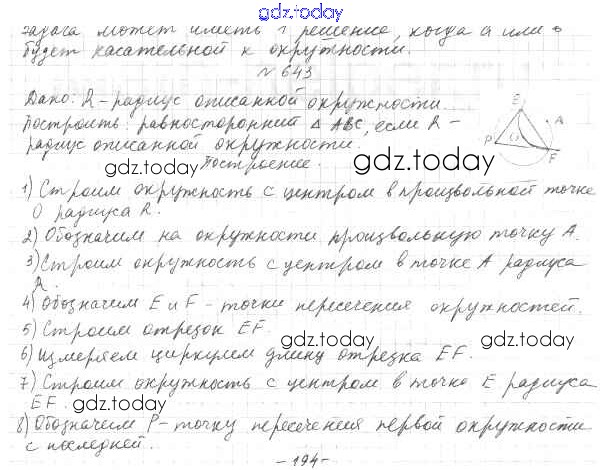 gdz.today
задача может иметь 1 решение, когда a или b
будет касательной к окружности.
№ 643
Дано: R - радиус описанной окружности
Построить: равносторонний △ ABC, если R -
радиус описанной окружности.
E
A
P
F
gdz.today
gdz.today
Построение.
1) Строим окружность с центром в произвольной точке
O радиуса R.
2) Обозначим на окружности произвольную точку A.
3) Строим окружность с центром в точке A радиуса
R.
4) Обозначим E и F - точки пересечения окружностей.
gdz.today
5) Строим отрезок EF.
gdz.today
gdz.today
6) Измеряем циркулем длину отрезка EF.
7) Строим окружность с центром в точке E радиуса
EF.
gdz.today
8) Обозначим P - точку пересечения первой окружности
с последней.
- 194 -
gdz.today